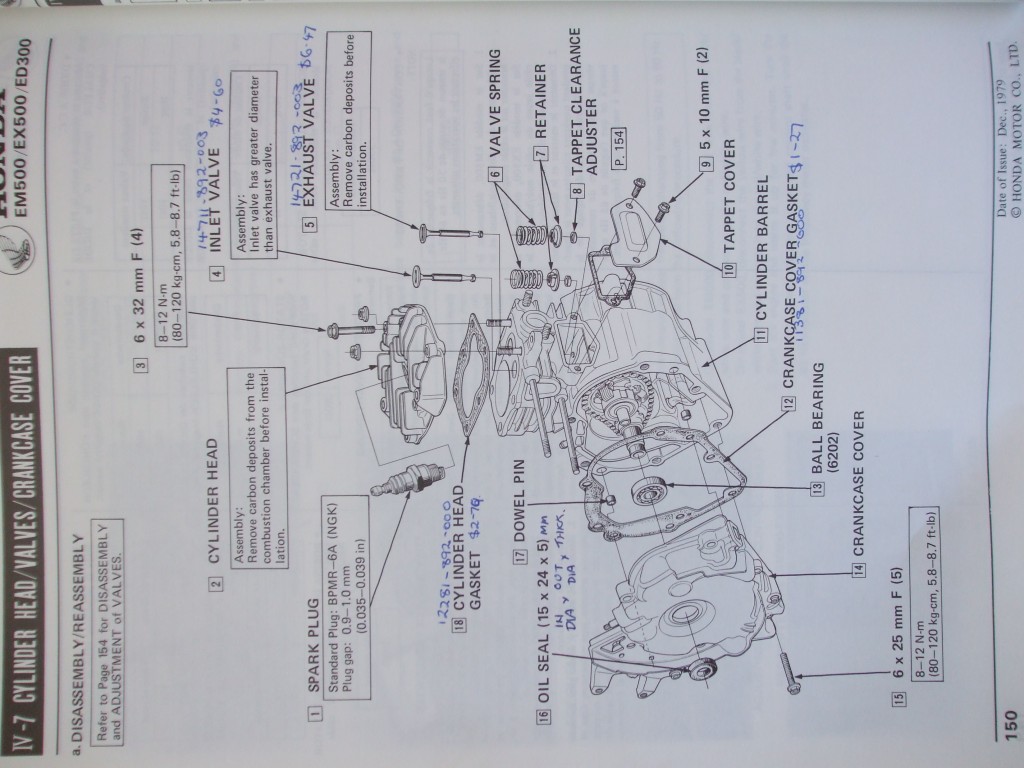 HONDA
EM500/EX500/ED300
IV-7 CYLINDER HEAD/VALVES/CRANKCASE COVER
a. DISASSEMBLY/REASSEMBLY
Refer to Page 154 for DISASSEMBLY
and ADJUSTMENT of VALVES.
1 SPARK PLUG
Standard Plug: BPMR-6A (NGK)
Plug gap: 0.9–1.0 mm
(0.035–0.039 in)
2 CYLINDER HEAD
Assembly:
Remove carbon deposits from the
combustion chamber before instal-
lation.
3 6 x 32 mm F (4)
8–12 N·m
(80–120 kg-cm, 5.8–8.7 ft-lb)
14711-892-003
4 INLET VALVE $4-60
Assembly:
Inlet valve has greater diameter
than exhaust valve.
14721-892-003
5 EXHAUST VALVE $6-47
Assembly:
Remove carbon deposits before
installation.
6 VALVE SPRING
7 RETAINER
8 TAPPET CLEARANCE
ADJUSTER
P. 154
9 5 x 10 mm F (2)
10 TAPPET COVER
11 CYLINDER BARREL
12 CRANKCASE COVER GASKET $1-27
11381-892-000
13 BALL BEARING
(6202)
14 CRANKCASE COVER
15 6 x 25 mm F (5)
8–12 N·m
(80–120 kg-cm, 5.8–8.7 ft-lb)
16 OIL SEAL (15 x 24 x 5) MM
IN OUT THKK.
DIA Y DIA Y
17 DOWEL PIN
12281-892-000
18 CYLINDER HEAD
GASKET $2-79
150
Date of Issue: Dec., 1979
© HONDA MOTOR CO., LTD.